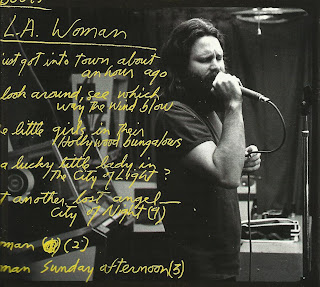 L.A. Woman
just got into town about
an hour ago
look around, see which
way the wind blow
e little girls in their
Hollywood bungalows
a lucky little lady in
The City of Light?
t another lost angel—
City of Night (4)
man (2)
man Sunday afternoon (3)